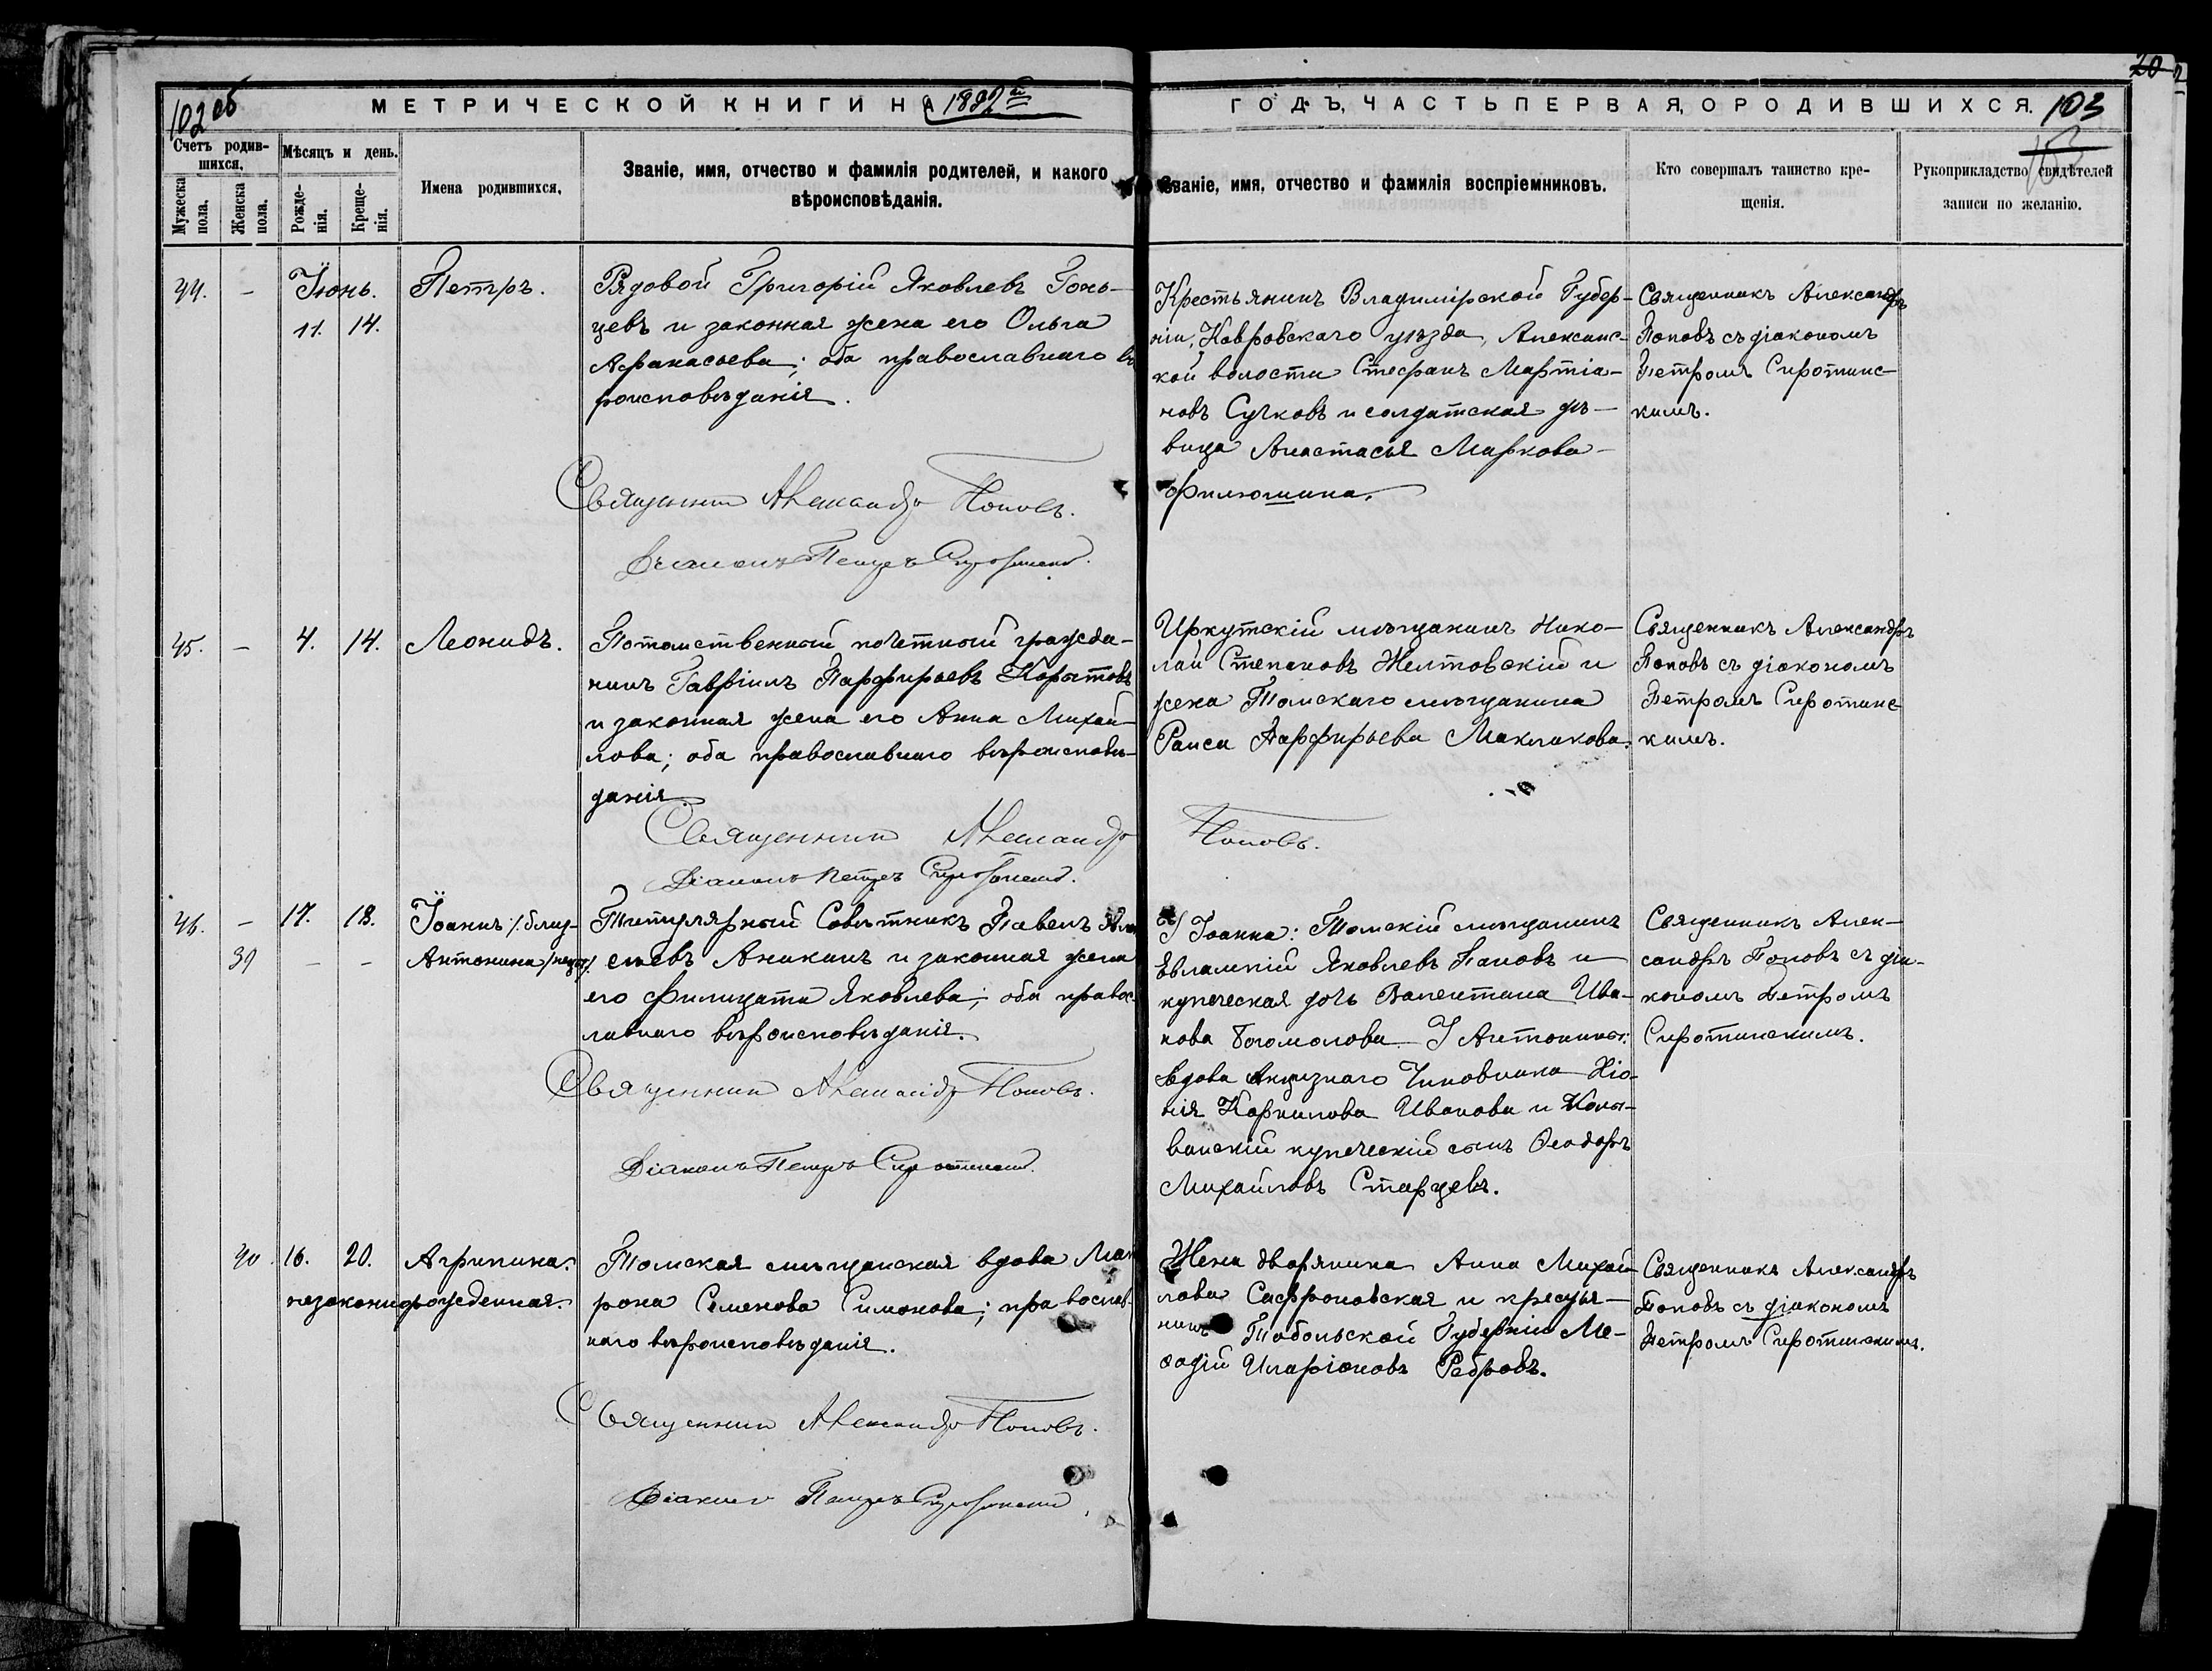 102 об
МЕТРИЧЕСКОЙ КНИГИ НА 1892й
ГОДЪ, ЧАСТЬ ПЕРВАЯ, О РОДИВШИХСЯ.
103
Счетъ родив-
шихся,
Мѣсяцъ и день.
Мужеска
пола.
Женска
пола.
Рожде-
нія.
Креще-
нія.
Имена родившихся,
Званіе, имя, отчество и фамилія родителей, и какого
вѣроисповѣданія.
Званіе, имя, отчество и фамилія воспріемниковъ.
Кто совершалъ таинство кре-
щенія.
Рукоприкладство свидѣтелей
записи по желанію.
44.
-
Іюнь.
11. 14.
Петръ.
Рядовой Григорій Яковлевъ Гонь-
цевъ и законная жена его Ольга
Афанасьева; оба православнаго вѣ
роисповѣданія.
Священник Александр Попов.
Діаконъ Петръ Сиротинский.
Крестьянинъ Владимірской Губер-
ніи, Ковровскаго уѣзда, Алексинс-
кой волости Стефанъ Мартіа-
новъ Сучковъ и солдатская дѣ-
вица Анастасія Маркова
Филюшина.
Священникъ Александръ
Поповъ съ діакономъ
Петромъ Сиротинс-
кимъ.
45.
-
4. 14.
Леонидъ.
Потомственный почетный гражда-
нинъ Гавріилъ Парфирьевъ Корытовъ
и законная жена его Анна Михай-
лова; оба православнаго вѣроисповѣ-
данія
Священник Александр Попов.
Діаконъ Петръ Сиротинский.
Иркутскій мѣщанинъ Нико-
лай Степановъ Желтовскій и
жена Томскаго мѣщанина
Раиса Парфирьева Маклакова.
Священникъ Александръ
Поповъ съ діакономъ
Петромъ Сиротинс
кимъ.
46.
-
17. 18.
Іоаннъ / близ-
39
- -
Антонина / нецы /
Титулярный Совѣтникъ Павелъ Але
ксѣевъ Аникинъ и законная жена
его Филицата Яковлева; оба правос-
лавнаго вѣроисповѣданія.
Священник Александр Попов.
Діаконъ Петръ Сиротинский.
У Іоанна: Томскій мѣщанинъ
Евлампій Яковлевъ Поповъ и
купеческая дочь Валентина Ива-
нова Богомолова У Антонины:
вдова Акцизнаго Чиновника Хіо-
нія Корнилова Иванова и Колы-
ванскій купеческій сынъ Ѳеодоръ
Михайловъ Старцевъ.
Священникъ Алек-
сандръ Поповъ съ діа-
кономъ Петромъ
Сиротинскимъ.
40.
16. 20.
Агрипина.
незаконнорожденная.
Томская мѣщанская вдова Мат
рона Семенова Симонова; православ-
наго вѣроисповѣданія.
Священник Александр Попов.
Діаконъ Петръ Сиротинский
Жена дворянина Анна Михай
лова Сафроновская и крестья-
нинъ Тобольской Губерніи Ме-
ѳодій Иларіоновъ Ребровъ.
Священникъ Александръ
Поповъ съ діакономъ
Петромъ Сиротинскимъ.